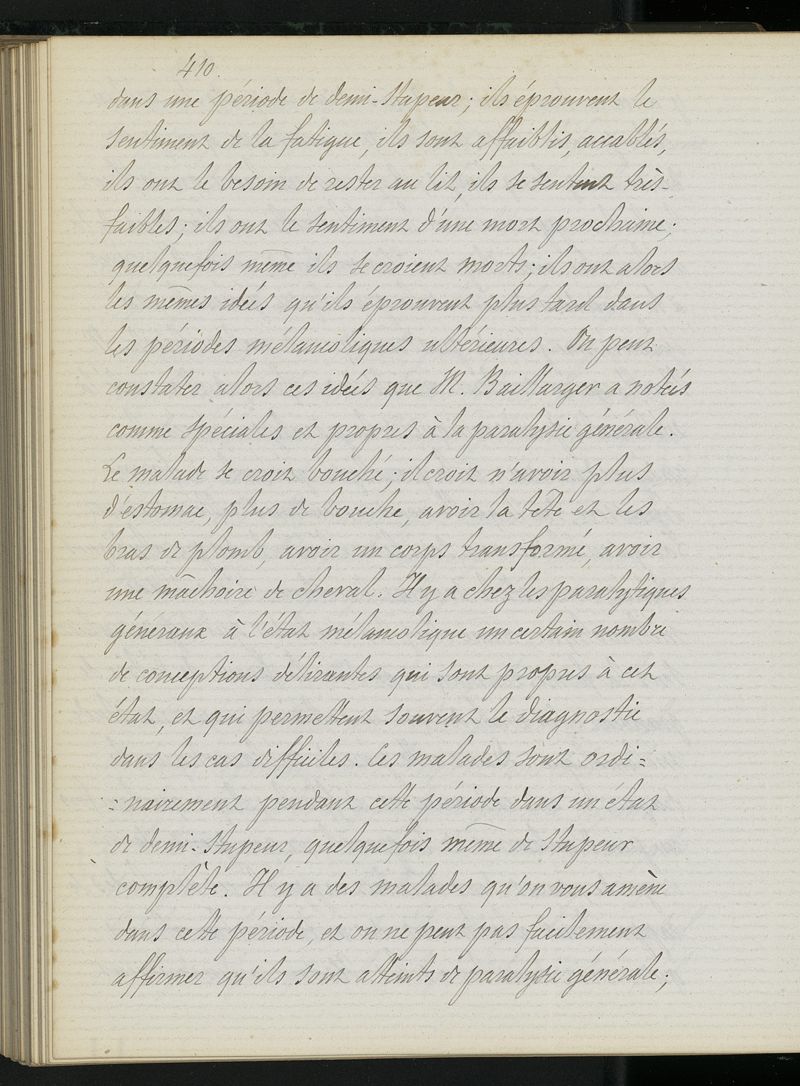 410.
dans une période de demi-stupeur; ils éprouvent le
sentiment de la fatigue, ils sont affaiblis, accablés,
ils ont le besoin de rester au lit, ils se sentent très-
faibles; ils ont le sentiment d'une mort prochaine;
quelquefois même ils se croient morts; ils ont alors
les mêmes idées qu'ils éprouvent plus tard dans
les périodes mélancoliques ultérieures. On peut
constater alors ces idées que M. Baillarger a notées
comme spéciales et propres à la paralysie générale.
Le malade se croit bouché; il croit n'avoir plus
d'estomac, plus de bouche, avoir la tête et les
bras de plomb, avoir un corps transformé, avoir
une mâchoire de cheval. Il y a chez les paralytiques
géneraux à l'état mélancolique un certain nombre
de conceptions délirantes qui sont propres à cet
état, et qui permettent souvent le diagnostic
dans les cas difficiles. Ces malades sont ordi=
=nairement pendant cette période dans un état
de demi-stupeur, quelquefois même de stupeur
complète. Il y a des malades qu'on vous amène
dans cette période, et on ne peut pas facilement
affirmer qu'ils sont atteints de paralysie générale;